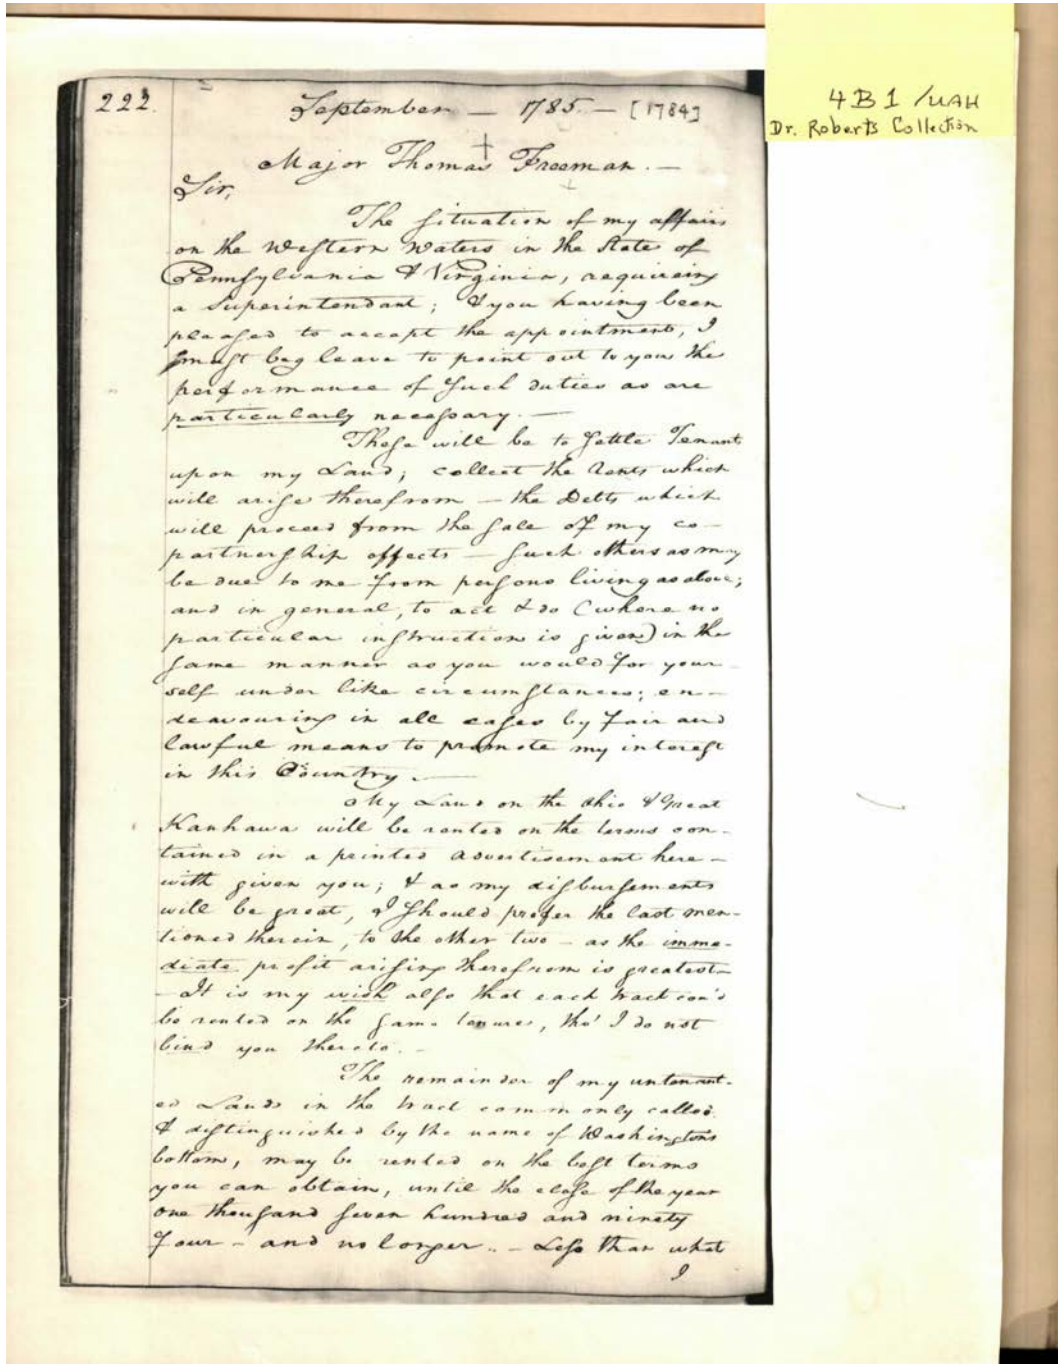 4B1/UAH
Dr. Roberts Collection
222.
September — 1785. — [1784]
Major Thomas Freeman. —
Sir,
The situation of my affairs
on the Western Waters in the State of
Pennsylvania & Virginia, requireing
a Superintendant; & you having been
pleased to accept the appointment, I
must beg leave to point out to you the
performance of such duties as are
particularly necessary. —
These will be to settle Tenants
upon my Land; collect the Rents which
will arise therefrom — the Debts which
will proceed from the sale of my co-
partnership effects — such others as may
be due to me from persons living as above;
and in general, to act & do (where no
particular instruction is given) in the
same manner as you would for your
self under like circumstances; en-
deavouring in all cases by fair and
lawful means to promote my interest
in this Country. —
My Lands on the Ohio & Great
Kanhawa will be rented on the terms con-
tained in a printed advertisement here-
with given you; & as my disbursements
will be great, I should prefer the last men-
tioned therein, to the other two — as the imme-
diate profit arising therefrom is greatest —
— It is my wish also that each tract cou'd
be rented on the same tenures, tho' I do not
bind you thereto. —
The remainder of my untenant-
ed Lands in the tract commonly called
& distinguished by the name of Washingtons
bottom, may be rented on the best terms
you can obtain, until the close of the year
one thousand seven hundred and ninety
four — and no longer. — Less than what
I